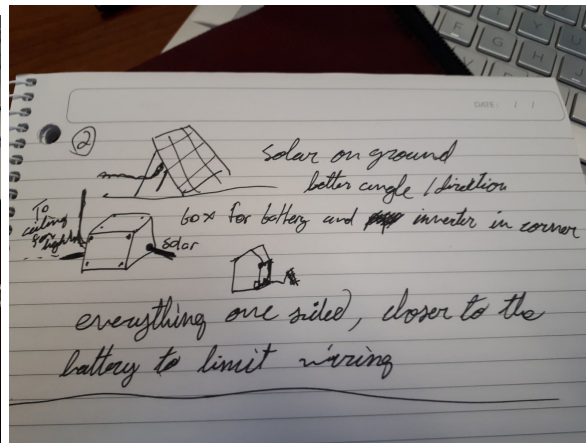 DATE: / /
②
solar on ground
better angle / direction
To
ceiling
for
lights
box for battery and inverter in corner
solar
everything one sided, closer to the
battery to limit wiring